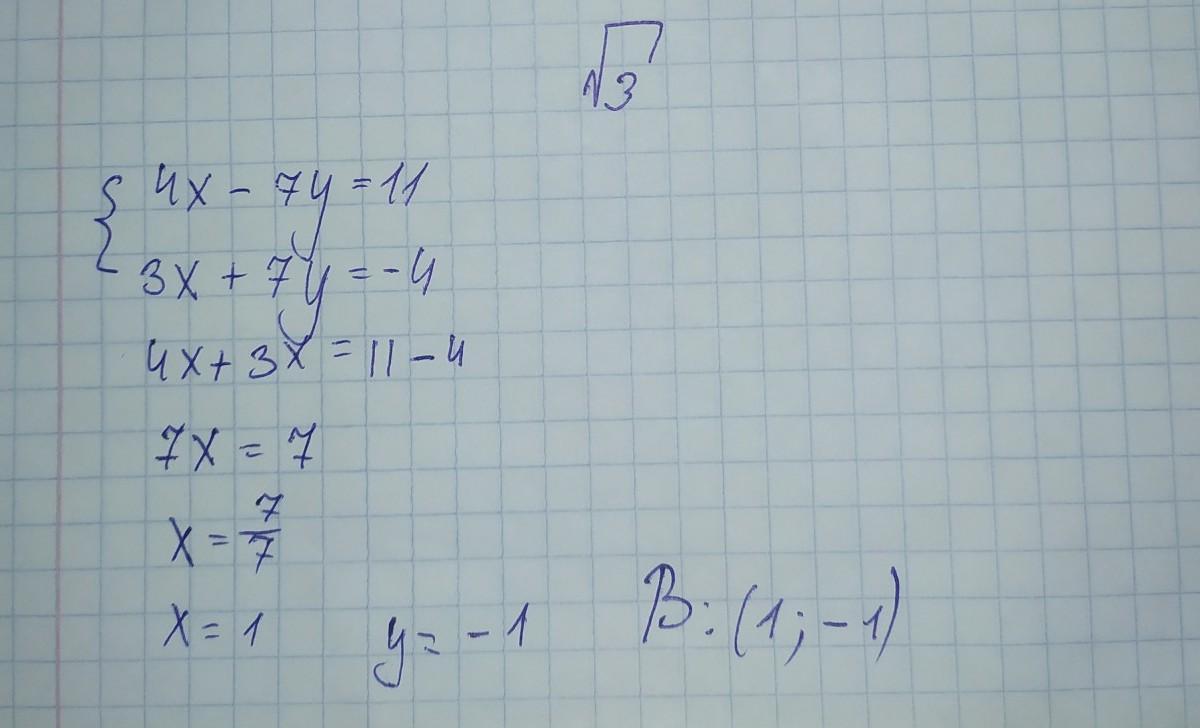 √3
{ 4x - 7y = 11
3x + 7y = -4
4x + 3x = 11 - 4
7x = 7
x = 7/7
x = 1 y = -1 В: (1; -1)